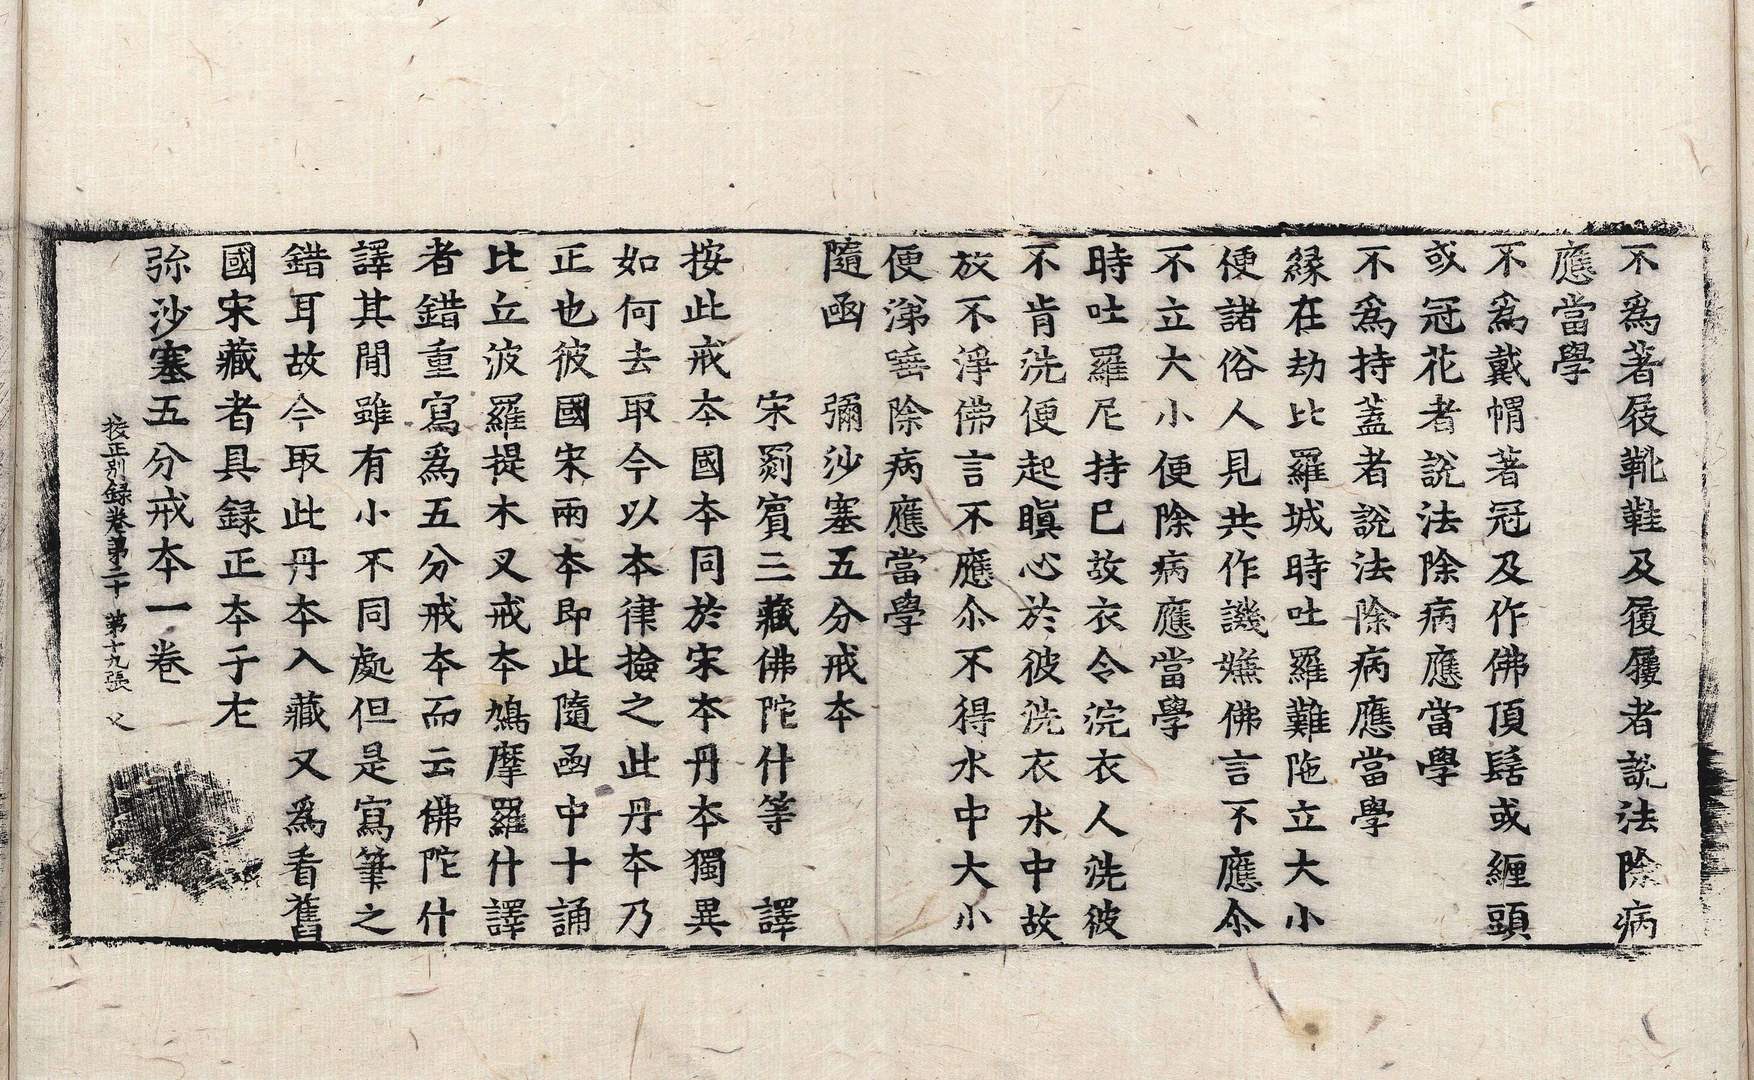 不爲著屐靴鞋及履屨者說法除病
應當學
不爲戴帽著冠及作佛頂髻或纏頭
或冠花者說法除病應當學
不爲持蓋者說法除病應當學
縁在劫比羅城時吐羅難陁立大小
便諸俗人見共作譏嫌佛言不應尒
不立大小便除病應當學
時吐羅尼持已故衣令浣衣人洗彼
不肯洗便起瞋心於彼洗衣水中故
放不淨佛言不應尒不得水中大小
便涕唾除病應當學
隨函　彌沙塞五分戒夲
宋罽賔三藏佛陀什等　譯
按此戒夲國夲同於宋夲丹夲獨異
如何去取今以夲律撿之此丹夲乃
正也彼國宋兩夲即此隨函中十誦
比丘波羅提木叉戒夲鳩摩羅什譯
者錯重寫爲五分戒夲而云佛陀什
譯其閒雖有小不同處但是寫筆之
錯耳故今取此丹夲入藏又爲看舊
國宋藏者具録正夲于左
弥沙塞五分戒夲一卷
挍正别録卷第二十　第十九張　乂